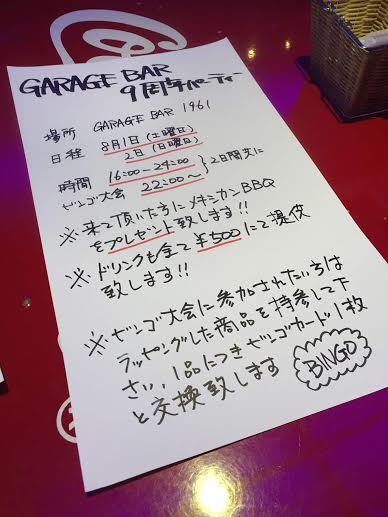 GARAGE BAR
9周年パーティー
場所 GARAGE BAR 1961
日程 8月1日(土曜日)
2日(日曜日)
時間 16:00~24:00 2日間共に
ビンゴ大会 22:00~
※来て頂いた方にメキシカンBBQ
をプレゼント致します!!
※ドリンクも全て¥500にて提供
致します!!
※ビンゴ大会に参加されたい方は
ラッピングした商品を持参して下
さい、1品につきビンゴカード1枚
と交換致します
BINGO